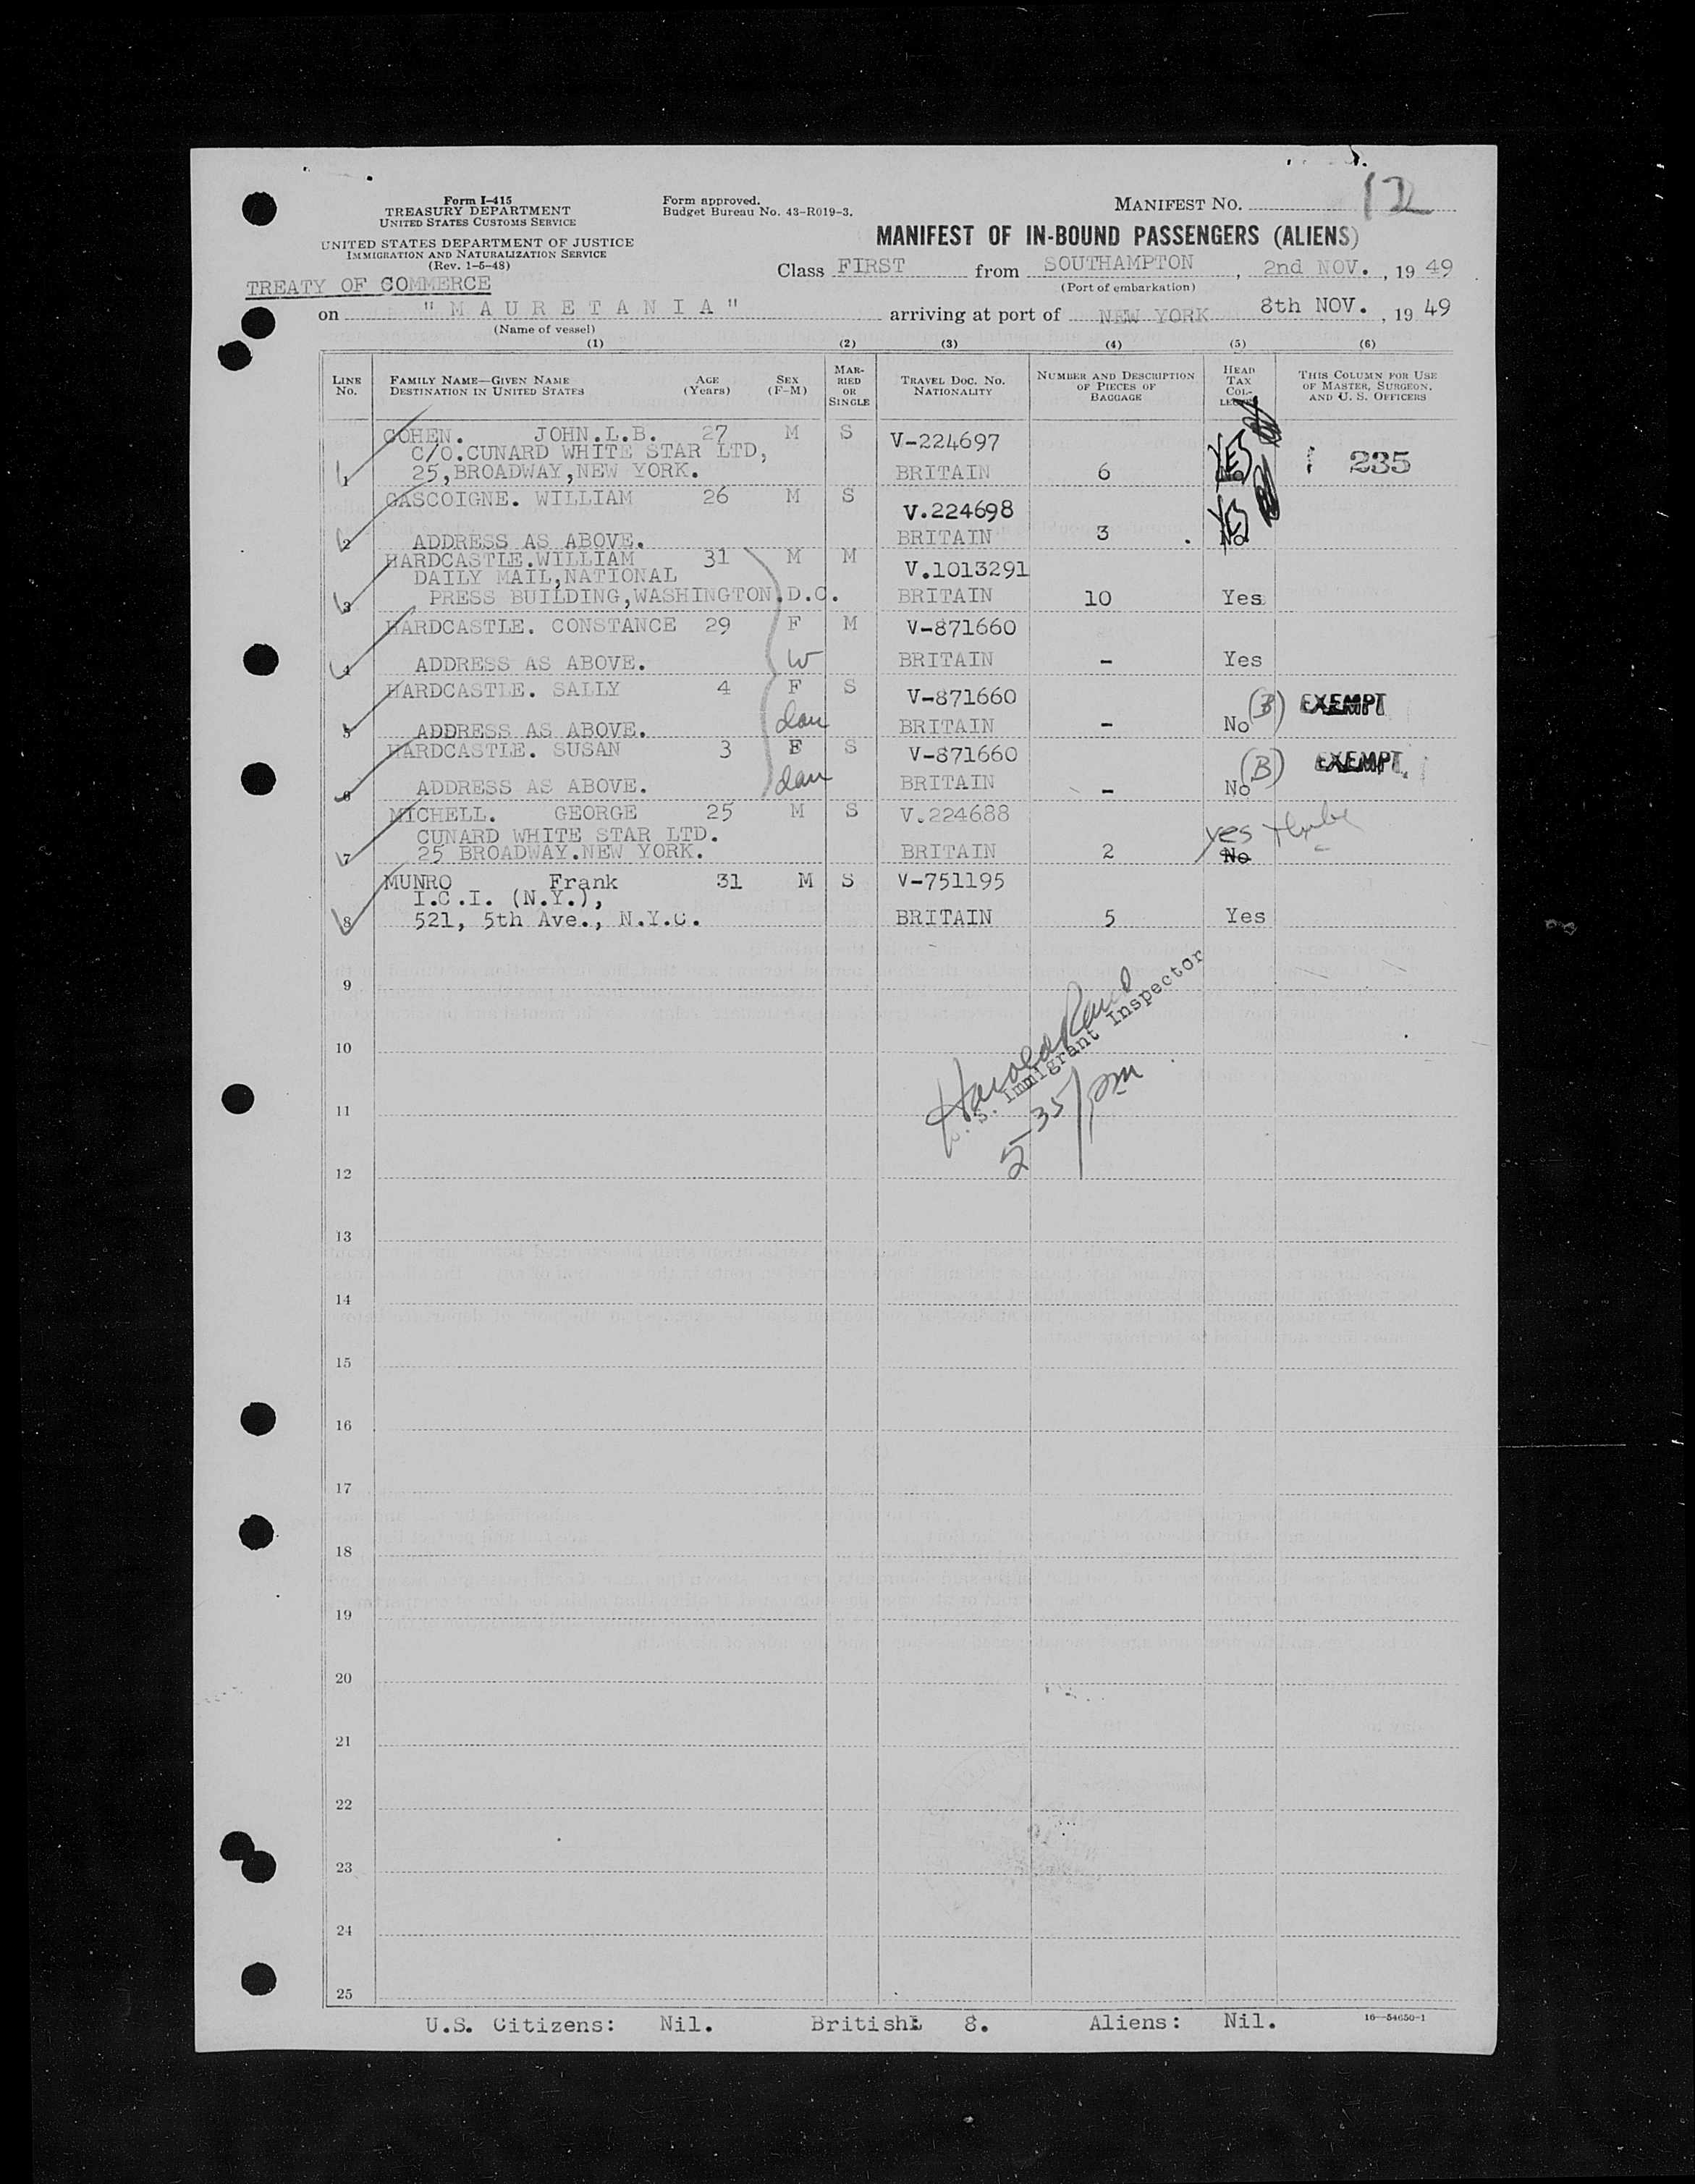 Form I-415
TREASURY DEPARTMENT
UNITED STATES CUSTOMS SERVICE
UNITED STATES DEPARTMENT OF JUSTICE
IMMIGRATION AND NATURALIZATION SERVICE
(Rev. 1-5-48)
TREATY OF COMMERCE
Form approved.
Budget Bureau No. 43-R019-3.
MANIFEST NO. 12
MANIFEST OF IN-BOUND PASSENGERS (ALIENS)
Class FIRST from SOUTHAMPTON, 2nd NOV., 1949
(Port of embarkation)
on "MAURETANIA" arriving at port of NEW YORK 8th NOV., 1949
(Name of vessel)
(1) (2) (3) (4) (5) (6)
LINE No.
FAMILY NAME—GIVEN NAME
DESTINATION IN UNITED STATES
AGE (Years)
SEX (F-M)
MARRIED OR SINGLE
TRAVEL DOC. NO.
NATIONALITY
NUMBER AND DESCRIPTION OF PIECES OF BAGGAGE
HEAD TAX COL-
THIS COLUMN FOR USE OF MASTER, SURGEON, AND U. S. OFFICERS
COHEN. JOHN.L.B. 27 M S V-224697
C/O.CUNARD WHITE STAR LTD,
1 25,BROADWAY,NEW YORK. BRITAIN 6 YES No 235
GASCOIGNE. WILLIAM 26 M S V.224698
2 ADDRESS AS ABOVE. BRITAIN 3 YES No
HARDCASTLE.WILLIAM 31 M M V.1013291
DAILY MAIL,NATIONAL
3 PRESS BUILDING,WASHINGTON.D.C. BRITAIN 10 Yes
HARDCASTLE. CONSTANCE 29 F M V-871660
4 ADDRESS AS ABOVE. W BRITAIN - Yes
HARDCASTLE. SALLY 4 F S V-871660
5 ADDRESS AS ABOVE. dau BRITAIN - No (B) EXEMPT
HARDCASTLE. SUSAN 3 F S V-871660
6 ADDRESS AS ABOVE. dau BRITAIN - No (B) EXEMPT
MICHELL. GEORGE 25 M S V.224688
CUNARD WHITE STAR LTD.
7 25 BROADWAY.NEW YORK. BRITAIN 2 yes No
MUNRO Frank 31 M S V-751195
I.C.I. (N.Y.),
8 521, 5th Ave., N.Y.C. BRITAIN 5 Yes
9
10
Harold
S. Immigrant Inspector
5 35 pm
11
12
13
14
15
16
17
18
19
20
21
22
23
24
25
U.S. Citizens: Nil. British: 8. Aliens: Nil.
16—54650-1